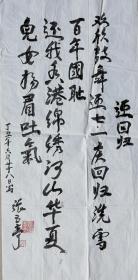 迎回归
欢欣鼓舞迎七一庆回归洗雪
百年国耻
还我香港绵绣河山华夏
兒女扬眉吐氣
丁丑年六月廿八日写